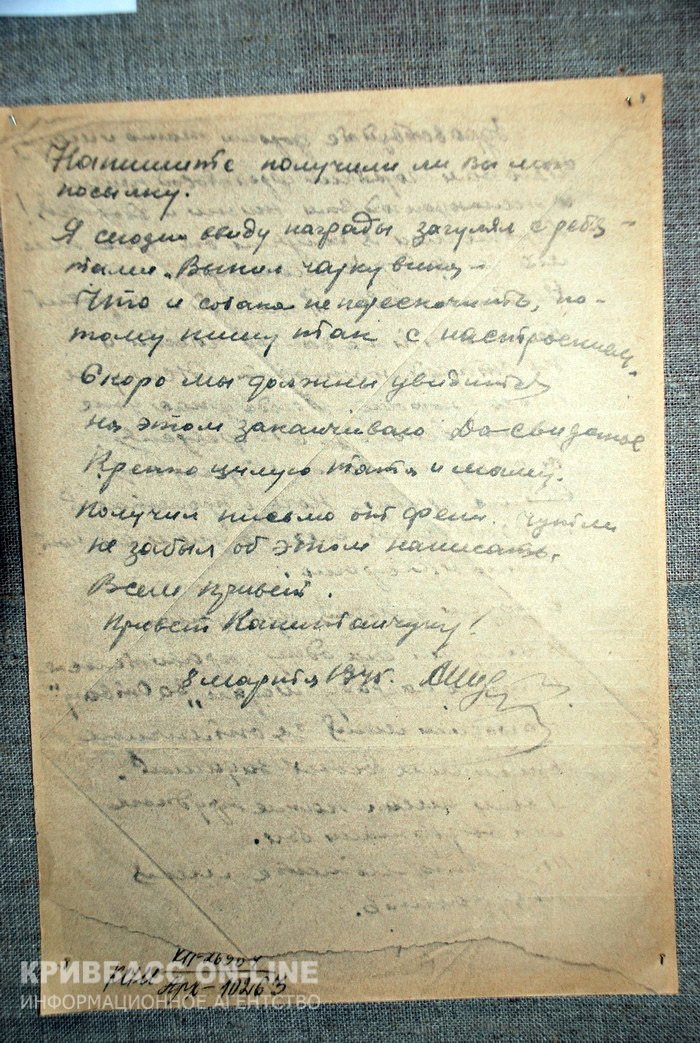 Напишите получили ли вы мою
посылку.
Я сегодня ввиду награды загулял с ребя-
тами. Выпил чарку вина -
Что и собака не перескочить, по-
тому пишу так с настроением.
Скоро мы должны увидится
на этом заканчиваю До-свиданье
Крепко цилую тата и маму.
Получил письмо от Фени. Чуть ли
не забыл об этом написать.
Всем привет.
Привет Капитанчуку!
8 марта 1945г.
КП-26904
КРИВБАСС ON-LINE
ИНФОРМАЦИОННОЕ АГЕНТСТВО